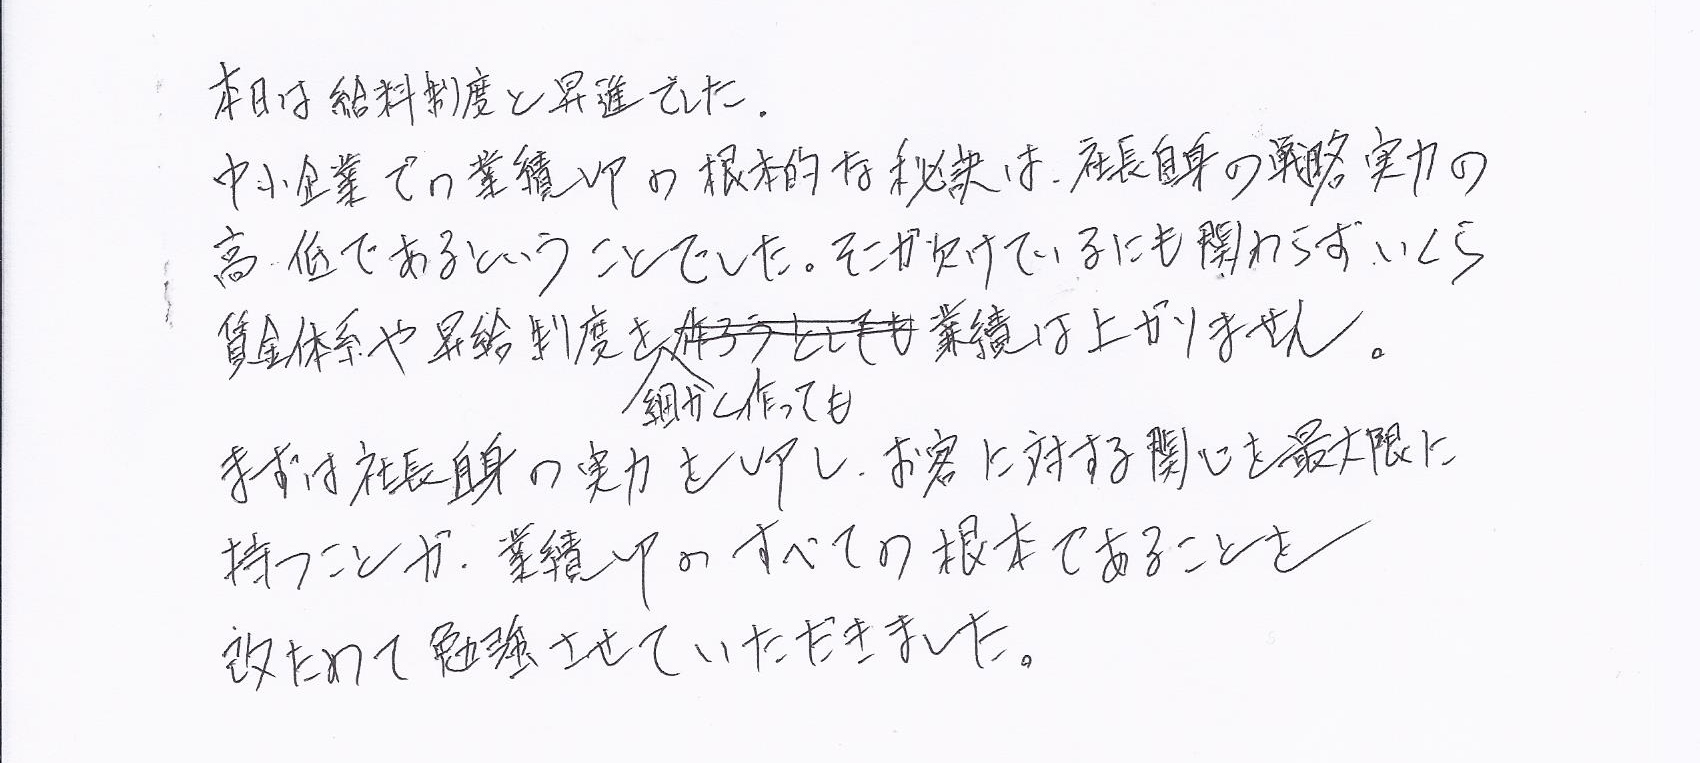 本日は給料制度と昇進でした.
中小企業での業績UPの根本的な秘訣は、社長自身の戦略実力の
高・低であるということでした。そこが欠けているにも関わらず、いくら
賃金体系や昇給制度を作ろうとしても業績は上がりません。
細かく作っても
まずは社長自身の実力をUPし、お客に対する関心を最大限に
持つことが、業績UPのすべての根本であることを
改ためて勉強させていただきました。